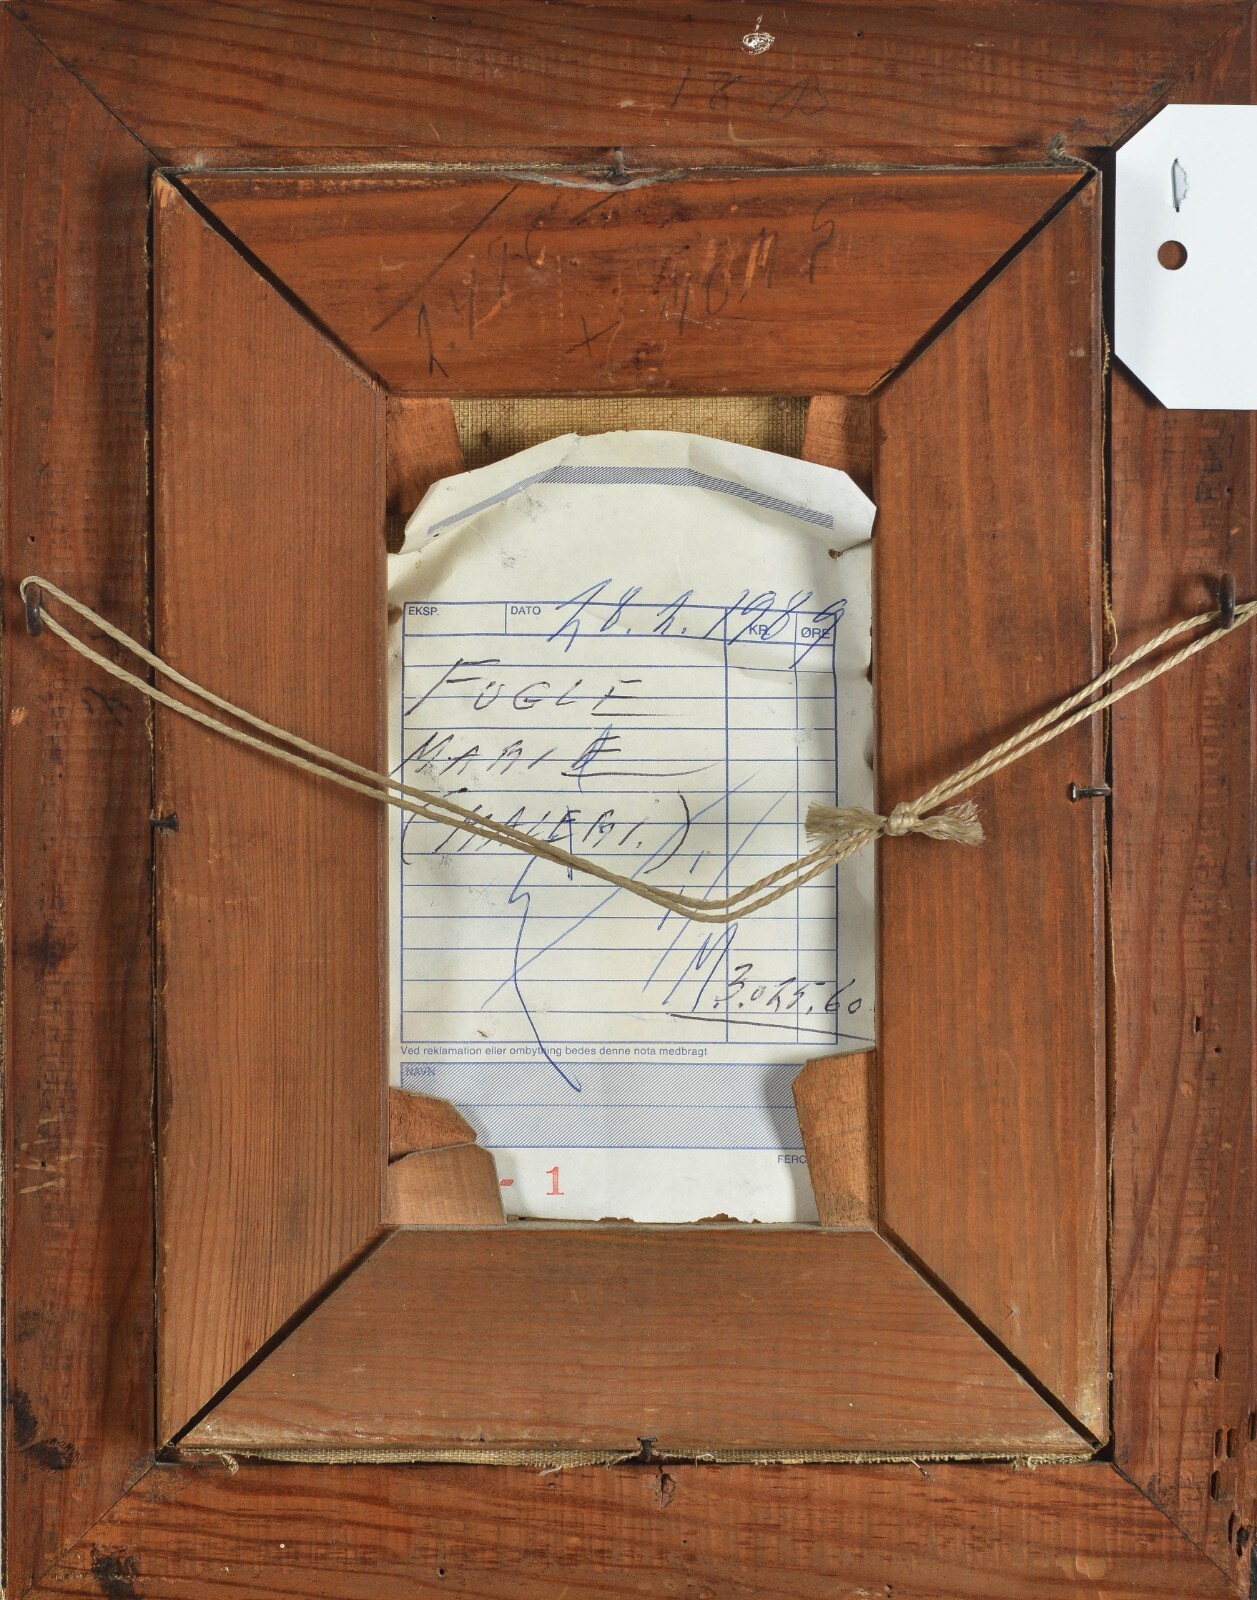 EKSP. DATO 28.2.1989
KR. ØRE
FUGLE
MARIE
(MALERI.)
3.025,60
Ved reklamation eller ombytning bedes denne nota medbragt
NAVN
- 1